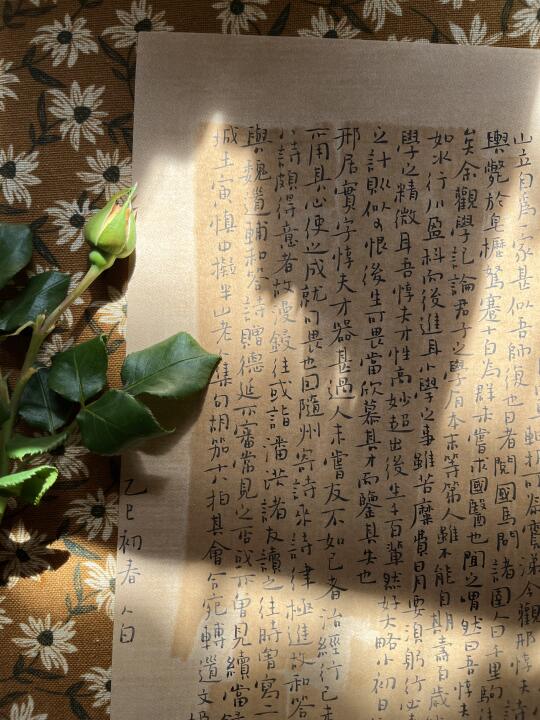 車軸折可勝嘆涕今觀邢惇夫詩
山立自為一家甚似吾師復也日者閱國馬問諸圉人千里駒
輿斃於皂櫪駑蹇十百為群未嘗求國醫也聞之喟然曰吾惇夫
矣余觀學記論君子之學有本末等第人雖不能自期壽百歲
如水行川盈科而後進耳小學之事雖苦糜費日月要須躬行必
學之精微耳吾惇夫才性高妙超出後生千百輩然好大略小初日
之計則似可恨後生可畏當欣慕其才而鑒其失也
邢居實字惇夫才器甚過人未嘗友不如己者治經行己未
而用其心使之成就可畏也回隨州寄詩來詩律極進故和答
詩頗得意者故漫録往或詣潘洪諸友讀之往時曾寫二
與魏道輔和答詩贈德延不審嘗見之否或不曾見續當録
城王寅慎中擬半山老人集句胡笳十八拍其會合宛轉道文姬
乙巳初春 人日